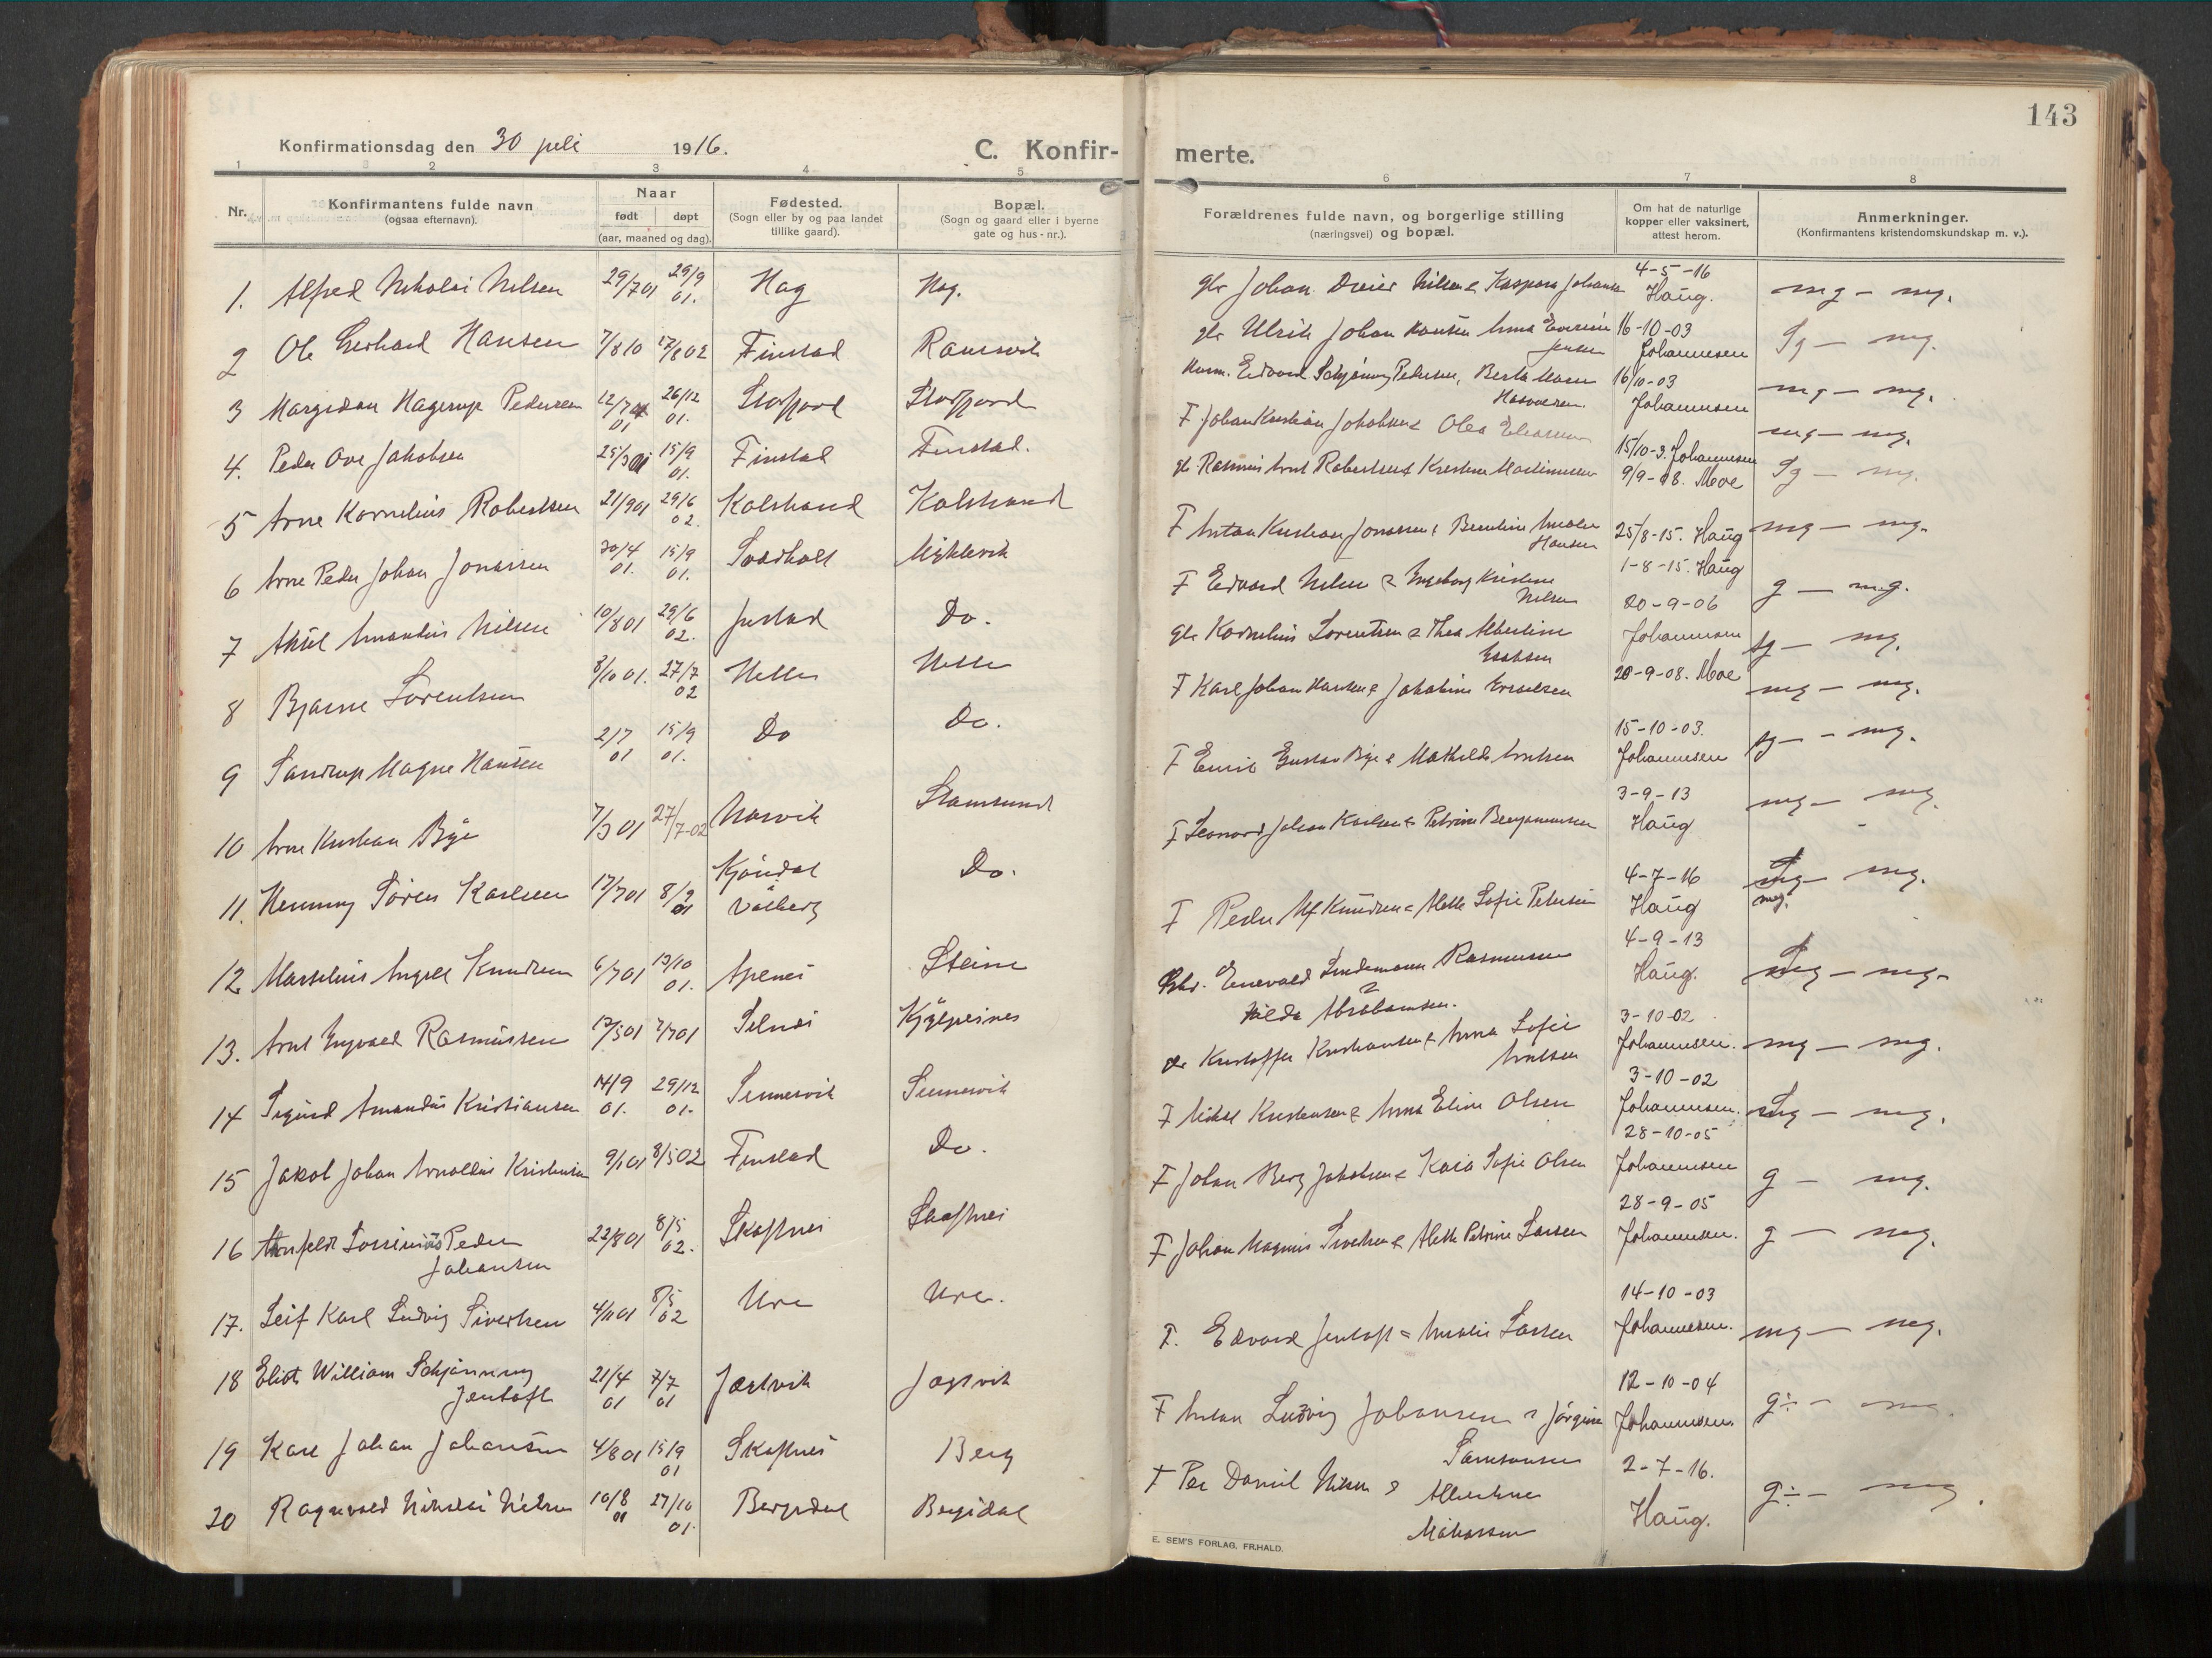 143
Konfirmationsdag den 30 juli 1916.
C. Konfir-
merte.
1 2 3 4 5 6 7 8
Nr.
Konfirmantens fulde navn
(ogsaa efternavn).
Naar
født døpt
(aar, maaned og dag).
Fødested.
(Sogn eller by og paa landet
tillike gaard).
Bopæl.
(Sogn og gaard eller i byerne
gate og hus-nr.).
Forældrenes fulde navn, og borgerlige stilling
(næringsvei) og bopæl.
Om hat de naturlige
kopper eller vaksinert,
attest herom.
Anmerkninger.
(Konfirmantens kristendomskundskap m. v.).
1. Alfred Nikolai Nilsen 29/7 01 29/9 01. Hag Hag. Johan Dreier Nilsen & Kaspara Johansen 4-5-16 Haug. mg - mg.
2 Ole Gerhard Hansen 7/8 10 17/8 02 Finstad Ramsvik Ulrik Johan Hansen Anna Jensen 16-10-03 Johannesen Sg - mg.
3 Hagerup Pedersen 12/7 01 26/12 01. Storfjord Storfjord Edvard Schjönning Pedersen, Berta 16/10-03 Johannesen mg - mg.
4. Peder Ove Jakobsen 25/3 01 15/9 01. Finstad Finstad. F Johan Kristian Jakobsen & Olea 15/10-3. Johannesen mg - mg.
5 Arne Kornelius Robertsen 21/9 01 29/6 02. Kalstrand Kalstrand Rasmus Arnt Robertsen & Kristine Martinussen 9/9-08. Moe Sg - mg.
6 Arne Peder Johan Jonassen 30/4 01. 15/9 01. Svarholt Myklevik F Anton Kristian Jonassen & Berntine Amalie Hansen 25/8-15. Haug mg - mg.
7 Aksel Amandus Nilsen 10/8 01 29/6 02. Justad Do. F Edvard Nilsen & Ingeborg Kristine Nilsen 1-8-15. Haug g - mg.
8 Bjarne Lorentsen 3/10 01. 27/7 02 Helle Helle Kornelius Lorentsen & Thea Albertine Esaksen 20-9-06 Johannesen sg - mg.
9 Sandrup Magne Hansen 2/7 01 15/9 01. Do Do. F Karl Johan Hansen & Jakobine 20-9-08. Moe mg - mg.
10 Arne Kristian Bye 7/3 01 27/7-02 Narvik Stamsund F Emil Gustav Bye & Mathilde Arntsen 15-10-03. Johannesen sg - mg.
11. Henning Søren Karlsen 17/7 01 8/9 01 Kjöndal i Valberg Do. F Leonard Johan Karlsen & Petrine Benjaminsen 3-9-13 Haug mg - mg
12 Marselius Angell Knudsen 6/7 01 13/10 01. Apenes Steine F Peder Alf Knudsen & Mette Sofie Petersen 4-7-16 Haug mg - mg.
13. Arnt Ingvald Rasmussen 17/5 01 7/7 01 Selnes Kjylpesnes Enevald Lindemann Rasmussen & Hilda Abrahamsen. 4-9-13 Haug. Sg - mg-
14 Sigurd Amandus Kristiansen 14/9 01. 29/12 01. Sennesvik Sennesvik Kristoffer Kristiansen & Anna Sofie Arntsen 3-10-02 Johannesen. mg - mg.
15 Jakob Johan Arnoldus Kristensen 9/1 01 8/5 02 Finstad Do. F Mikal Kristensen & Anna Eline Olsen 3-10-02 Johannesen. Sg - mg.
16 Arnfeldt Peder Johansen 22/8 01 8/5 02. Skaftnes Skaftnes F Johan Berg Jakobsen & Kaia Sofie Olsen 28-10-05 Johannesen g - mg.
17. Leif Karl Ludvig Sivertsen 4/11 01 8/5 02 Ure Ure. F Johan Magnus Sivertsen & Mette Petrine Larsen 28-9-05 Johannesen. g - mg.
18 Eliot William Schjönning Jentoft 21/4 01 7/7 01 Jostvik Jostvik F. Edvard Jentoft & Amalie Larsen 14-10-03 Johannesen. mg - mg.
19 Karl Johan Johansen 4/8 01 15/9 01 Skaftnes Berg F Anton Ludvig Johansen & Jørgine Samsonsen 12-10-04 Johannesen. g÷ - mg.
20 Ragnvald Nikolai Nilsen 10/8 01 27/10 01. Bergsdal Bergsdal F Per Daniel Nilsen & Albertine 2-7-16. Haug. g÷ - mg.
E. SEM'S FORLAG, FR.HALD.